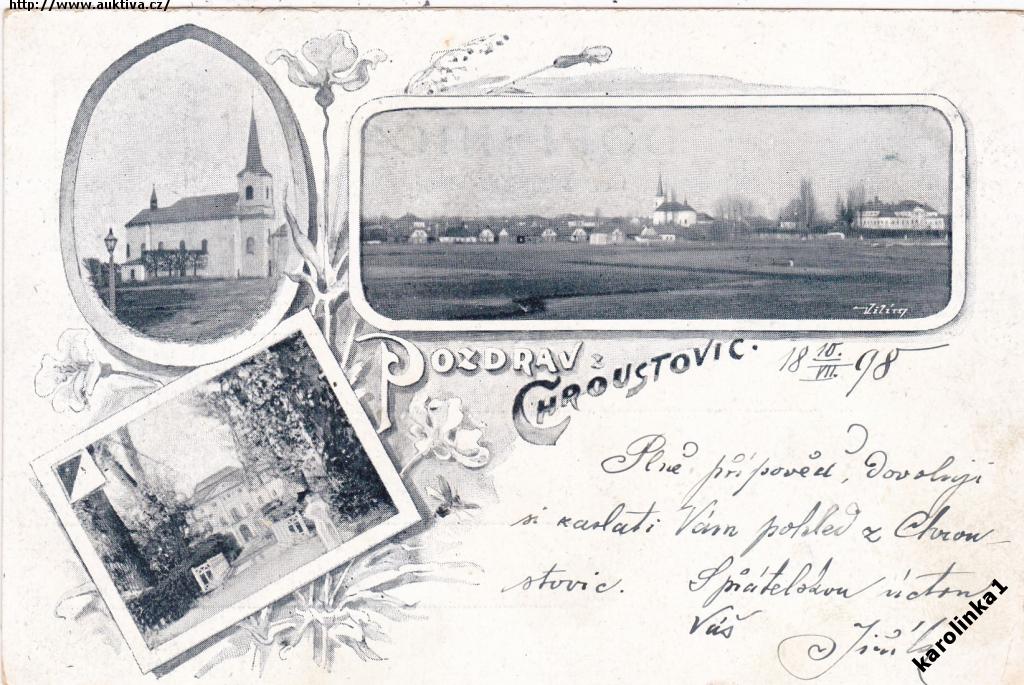 http://www.auktiva.cz/
POZDRAV z
CHROUSTOVIC.
18 10./VII. 98
Plně přípověď, dovoluji
si zaslati Vám pohled z Chrou-
stovic. S přátelskou úctou
Váš
karolinka1